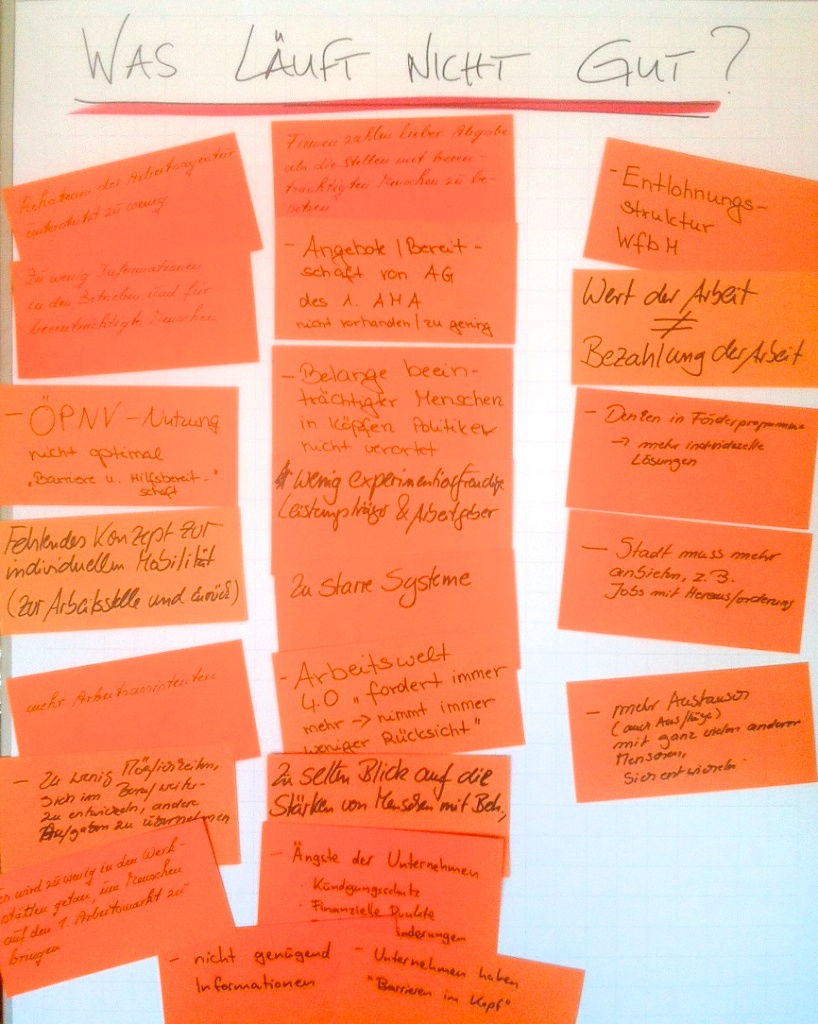 WAS LÄUFT NICHT GUT?
Rehateam der Arbeitsagentur
unterstützt zu wenig
Zu wenig Informationen
in den Betrieben und für
beeinträchtigte Menschen
- ÖPNV-Nutzung
nicht optimal
"Barriere u. Hilfsbereit-"
schaft
Fehlendes Konzept zur
individuellen Mobilität
(zur Arbeitsstelle und zurück)
mehr Arbeitsassistenten
- Zu wenig Möglichkeiten,
sich im Beruf weiter-
zu entwickeln, andere
Aufgaben zu übernehmen
es wird zu wenig in den Werk-
stätten getan, um Menschen
auf den 1. Arbeitsmarkt zu
bringen
Firmen zahlen lieber Abgabe
als die Stellen mit beein-
trächtigten Menschen zu be-
setzen
- Angebote / Bereit-
schaft von AG
des 1. AMA
nicht vorhanden / zu gering
- Belange beein-
trächtigter Menschen
in Köpfen Politiker
nicht verortet
wenig experimentierfreudige
Leistungsträger & Arbeitgeber
Zu starre Systeme
- Arbeitswelt
4.0 "fordert immer
mehr -> nimmt immer
weniger Rücksicht"
Zu selten Blick auf die
Stärken von Menschen mit Beh.,
- Ängste der Unternehmen
· Kündigungsschutz
· Finanzielle Punkte
änderungen
- nicht genügend
Informationen
- Unternehmen haben
"Barrieren im Kopf"
- Entlohnungs-
struktur
WfbM
Wert der Arbeit
≠
Bezahlung der Arbeit
- Denken in Förderprogramme
-> mehr individuelle
Lösungen
- Stadt muss mehr
anbieten, z.B.
Jobs mit Herausforderung
- mehr Austausch
(auch Ausflüge)
mit ganz vielen anderen
Menschen,
Sich entwickeln.